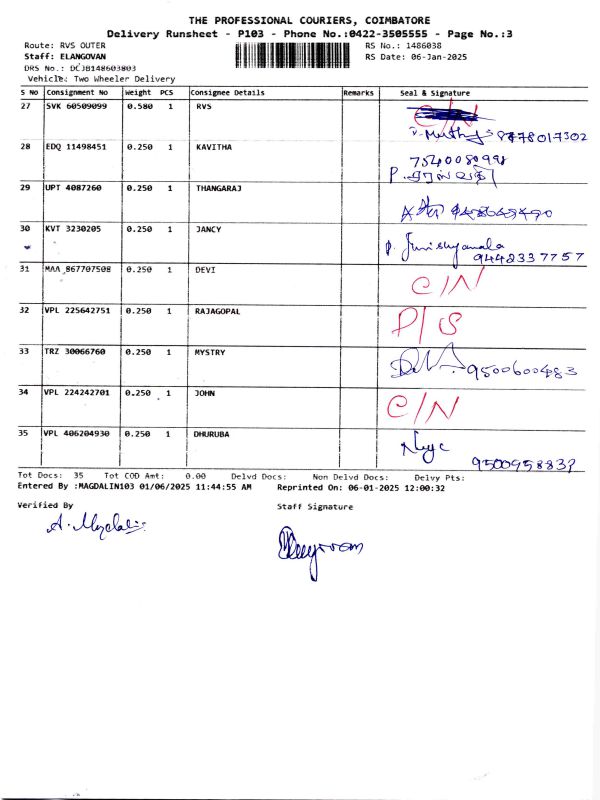 THE PROFESSIONAL COURIERS, COIMBATORE
Delivery Runsheet - P103 - Phone No.:0422-3505555 - Page No.:3
Route: RVS OUTER RS No.: 1486038
Staff: ELANGOVAN RS Date: 06-Jan-2025
DRS No.: DCJB148603803
Vehicle: Two Wheeler Delivery
S No Consignment No Weight PCS Consignee Details Remarks Seal & Signature
27 SVK 60509099 0.580 1 RVS C/N
8778017302
28 EDQ 11498451 0.250 1 KAVITHA
29 UPT 4087260 0.250 1 THANGARAJ
30 KVT 3230205 0.250 1 JANCY
9442337757
31 MAA 867707508 0.250 1 DEVI C/N
32 VPL 225642751 0.250 1 RAJAGOPAL P/S
33 TRZ 30066760 0.250 1 MYSTRY 9500600483
34 VPL 224242701 0.250 1 JOHN C/N
35 VPL 406204930 0.250 1 DHURUBA
Tot Docs: 35 Tot COD Amt: 0.00 Delvd Docs: Non Delvd Docs: Delvy Pts:
Entered By :MAGDALIN103 01/06/2025 11:44:55 AM Reprinted On: 06-01-2025 12:00:32
Verified By Staff Signature